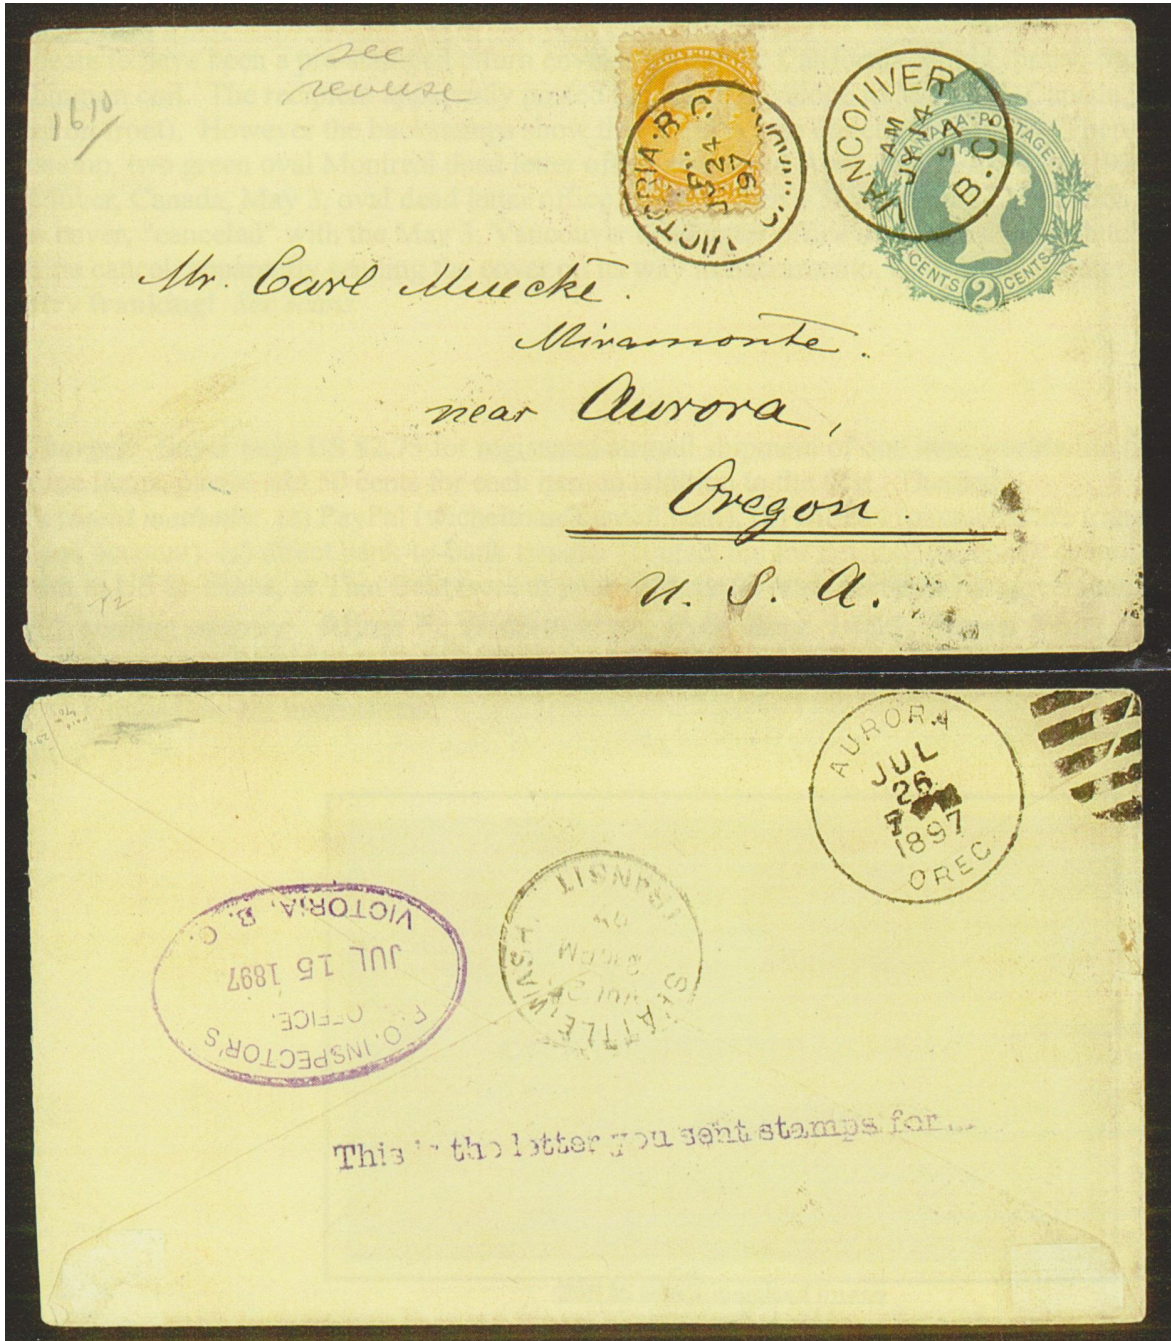 see
reverse
1610
CANADA POSTAGE
VICTORIA. B. C.
JY 24
97
VANCOUVER
AM
JY 14
97
B.C.
CANADA·POSTAGE
2 CENTS 2 CENTS
Mr. Carl Muecke.
Miramonte.
near Aurora,
Oregon.
U. S. A.
T2
AURORA
JUL
26
1897
OREG
TRANSIT
SEATTLE, WASH.
P.O. INSPECTOR'S
OFFICE.
JUL 15 1897
VICTORIA, B. C.
This is the letter you sent stamps for...